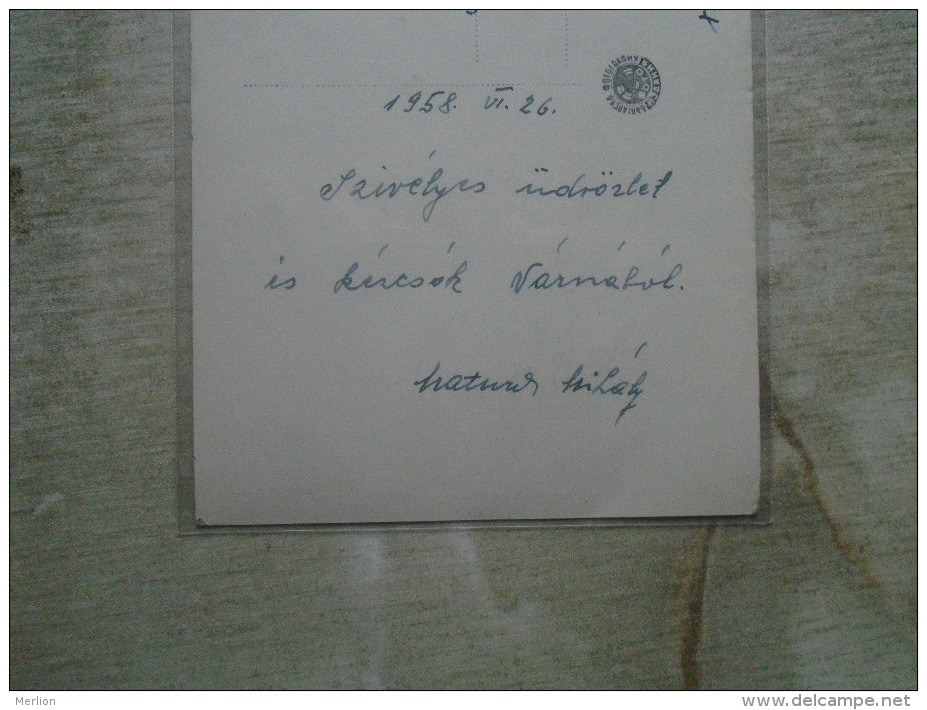 1958. VI. 26.
Szivélyes üdvözlet
és
Várnából.
Mihály
Merlion
www.delcampe.net